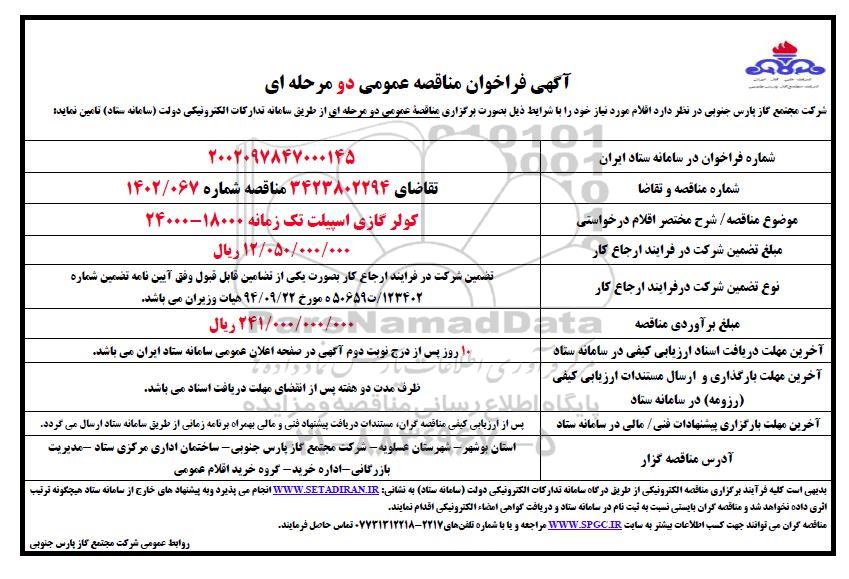 آگهی فراخوان مناقصه عمومی دو مرحله ای
شرکت مجتمع گاز پارس جنوبی در نظر دارد اقلام مورد نیاز خود را با شرایط ذیل بصورت برگزاری مناقصهٔ عمومی دو مرحله ای از طریق سامانه تدارکات الکترونیکی دولت (سامانه ستاد) تامین نماید:
شماره فراخوان در سامانه ستاد ایران
۲۰۰۲۰۹۷۸۴۷۰۰۰۱۴۵
شماره مناقصه و تقاضا
تقاضای ۳۴۲۳۸۰۲۲۹۴ مناقصه شماره ۱۴۰۲/۰۶۷
موضوع مناقصه/ شرح مختصر اقلام درخواستی
کولر گازی اسپیلت تک زمانه ۱۸۰۰۰-۲۴۰۰۰
مبلغ تضمین شرکت در فرایند ارجاع کار
۱۲/۰۵۰/۰۰۰/۰۰۰ ریال
نوع تضمین شرکت درفرایند ارجاع کار
تضمین شرکت در فرایند ارجاع کار بصورت یکی از تضامین قابل قبول وفق آیین نامه تضمین شماره
۱۲۳۴۰۲/ت۵۰۶۵۹ ه مورخ ۹۴/۰۹/۲۲ هیات وزیران می باشد.
مبلغ برآوردی مناقصه
۲۴۱/۰۰۰/۰۰۰/۰۰۰ ریال
آخرین مهلت دریافت اسناد ارزیابی کیفی در سامانه ستاد
۱۰ روز پس از درج نوبت دوم آگهی در صفحه اعلان عمومی سامانه ستاد ایران می باشد.
آخرین مهلت بارگذاری و ارسال مستندات ارزیابی کیفی
(رزومه) در سامانه ستاد
ظرف مدت دو هفته پس از انقضای مهلت دریافت اسناد می باشد.
آخرین مهلت بارگزاری پیشنهادات فنی/ مالی در سامانه ستاد
پس از ارزیابی کیفی مناقصه گران، مستندات دریافت پیشنهاد فنی و مالی بهمراه برنامه زمانی از طریق سامانه ستاد ارسال می گردد.
آدرس مناقصه گزار
استان بوشهر- شهرستان عسلویه- شرکت مجتمع گاز پارس جنوبی- ساختمان اداری مرکزی ستاد -مدیریت
بازرگانی-اداره خرید- گروه خرید اقلام عمومی
بدیهی است کلیه فرآیند برگزاری مناقصه الکترونیکی از طریق درگاه سامانه تدارکات الکترونیکی دولت (سامانه ستاد) به نشانی: WWW.SETADIRAN.IR انجام می پذیرد وبه پیشنهاد های خارج از سامانه ستاد هیچگونه ترتیب
اثری داده نخواهد شد و مناقصه گران بایستی نسبت به ثبت نام در سامانه ستاد و دریافت گواهی امضاء الکترونیکی اقدام نمایند.
مناقصه گران می توانند جهت کسب اطلاعات بیشتر به سایت WWW.SPGC.IR مراجعه و یا با شماره تلفن‌های۲۲۱۷-۰۷۷۳۱۳۱۲۲۱۸ تماس حاصل فرمایند.
روابط عمومی شرکت مجتمع گاز پارس جنوبی
ParsNamadData
پایگاه اطلاع رسانی مناقصه و مزایده